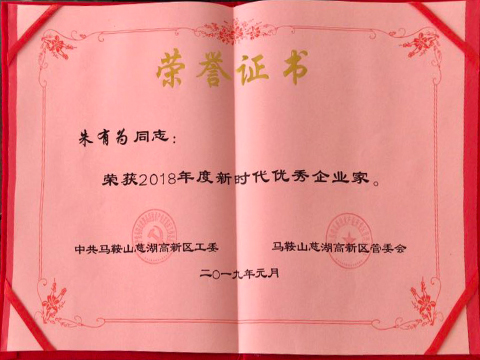 荣誉证书
朱有为同志：
荣获2018年度新时代优秀企业家。
中共马鞍山慈湖高新区工委 马鞍山慈湖高新区管委会
二〇一九年元月